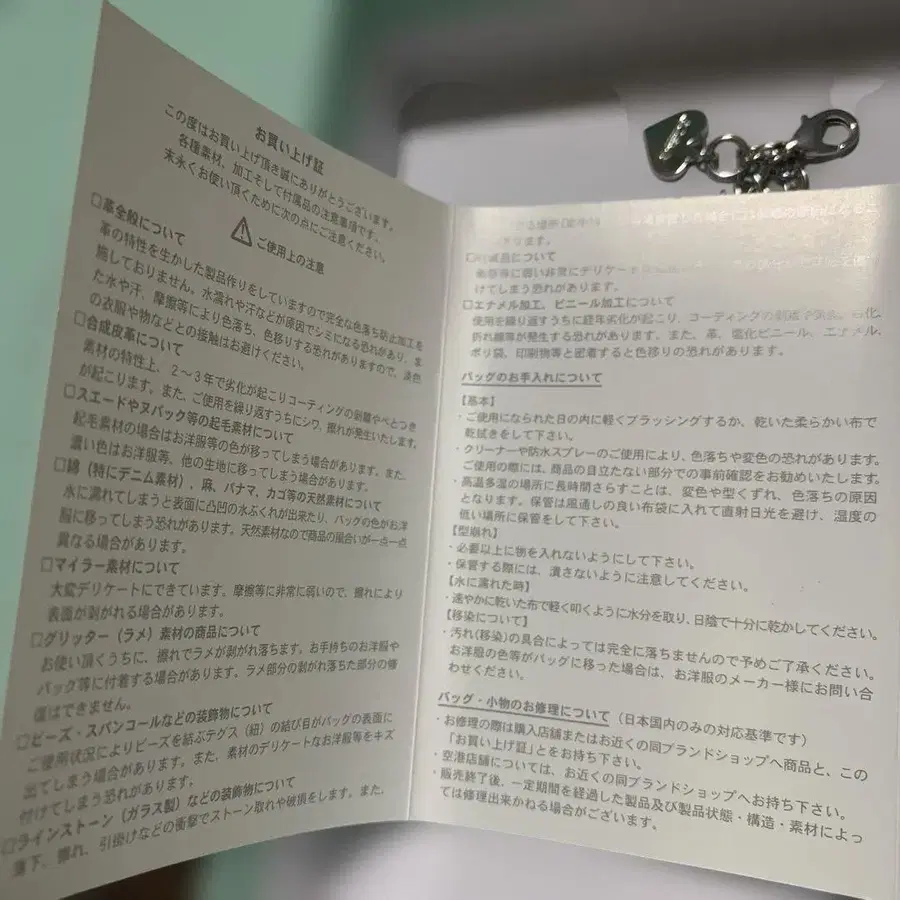 お買い上げ証
この度はお買い上げ頂き誠にありがとうございます。
各種素材、加工そして付属品の注意事項です。
末永くお使い頂くために次の点にご注意ください。
ご使用上の注意
□革全般について
革の特性を生かした製品作りをしていますので完全な色落ち防止加工を
施しておりません。水濡れや汗などが原因でシミになる恐れがあり、ま
た水や汗、摩擦等により色落ち、色移りする恐れがありますので、淡色
の衣服や物などとの接触はお避けください。
□合成皮革について
素材の特性上、2～3年で劣化が起こりコーティングの剥離やべとつき
が起こります。また、ご使用を繰り返すうちにシワ、擦れが発生いたします。
□スエードやヌバック等の起毛素材について
起毛素材の場合はお洋服等の色が移ってしまう場合があります。また、
濃い色はお洋服等、他の生地に移ってしまう場合があります。
□綿（特にデニム素材）、麻、パナマ、カゴ等の天然素材について
水に濡れてしまうと表面に凸凹の水ぶくれが出来たり、バッグの色がお洋
服に移ってしまう恐れがあります。天然素材なので商品の風合いが一点一点
異なる場合があります。
□マイラー素材について
大変デリケートにできています。摩擦等に非常に弱いので、擦れにより
表面が剥がれる場合があります。
□グリッター（ラメ）素材の商品について
お使い頂くうちに、擦れでラメが剥がれ落ちます。お手持ちのお洋服や
バッグ等に付着する場合があります。ラメ部分の剥がれ落ちた部分の修
復はできません。
□ビーズ・スパンコールなどの装飾物について
ご使用状況によりビーズを結ぶテグス（紐）の結び目がバッグの表面に
出てしまう場合があります。また、素材のデリケートなお洋服等をキズ
付けてしまう恐れがあります。
□ラインストーン（ガラス製）などの装飾物について
落下、擦れ、引掛けなどの衝撃でストーン取れや破損をします。また、
ります。
について
衝撃等に弱い非常にデリケート
けてしまう恐れがあります。
□エナメル加工、ビニール加工について
使用を繰り返すうちに経年劣化が起こり、コーティングの剥離
折れ線等が発生する恐れがあります。また、革、塩化ビニール、エナメル、
ポリ袋、印刷物等と密着すると色移りの恐れがあります。
バッグのお手入れについて
【基本】
・ご使用になられた日の内に軽くブラッシングするか、乾いた柔らかい布で
乾拭きをして下さい。
・クリーナーや防水スプレーのご使用により、色落ちや変色の恐れがあります。
ご使用の際には、商品の目立たない部分での事前確認をお勧めいたします。
・高温多湿の場所に長時間さらすことは、変色や型くずれ、色落ちの原因
となります。保管は風通しの良い布袋に入れて直射日光を避け、湿度の
低い場所に保管をして下さい。
【型崩れ】
・必要以上に物を入れないようにして下さい。
・保管する際には、潰さないように注意してください。
【水に濡れた時】
・速やかに乾いた布で軽く叩くように水分を取り、日陰で十分に乾かしてください。
【移染について】
・汚れ(移染)の具合によっては完全に落ちませんので予めご了承ください。
お洋服の色等がバッグに移った場合は、お洋服のメーカー様にお問い合
わせください。
バッグ・小物のお修理について（日本国内のみの対応基準です）
・お修理の際は購入店舗またはお近くの同ブランドショップへ商品と、この
「お買い上げ証」とをお持ち下さい。
・空港店舗については、お近くの同ブランドショップへお持ち下さい。
・販売終了後、一定期間を経過した製品及び製品状態・構造・素材によっ
ては修理出来かねる場合がございます。